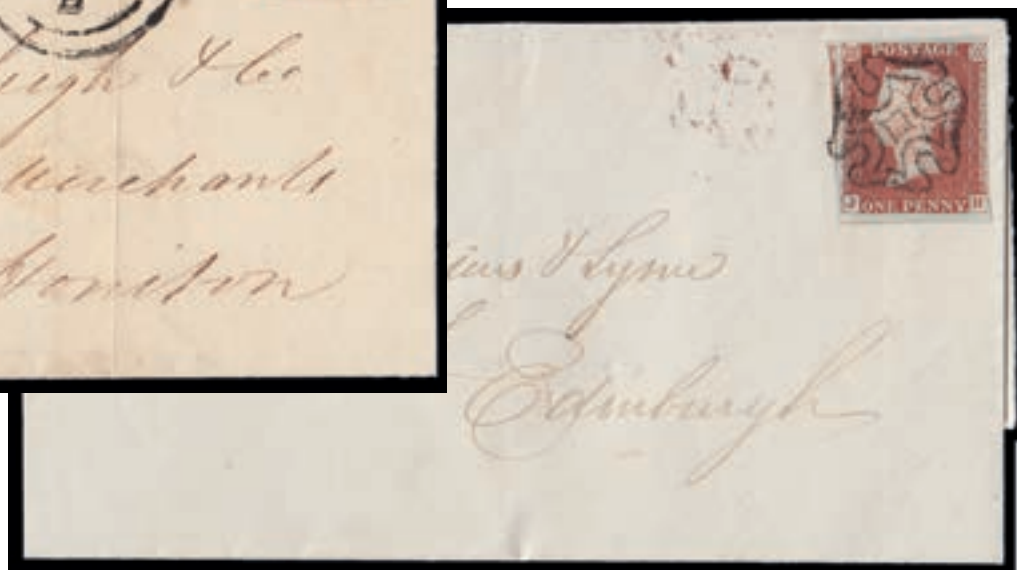 & Co
Merchants
Honiton
POSTAGE
ONE PENNY
& Lyme
Edinburgh